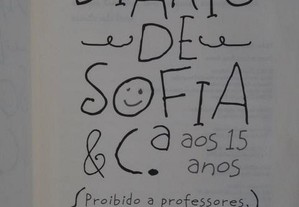 DIÁRIO
DE
SOFIA
& C.ª aos 15
anos
(Proibido a professores,)